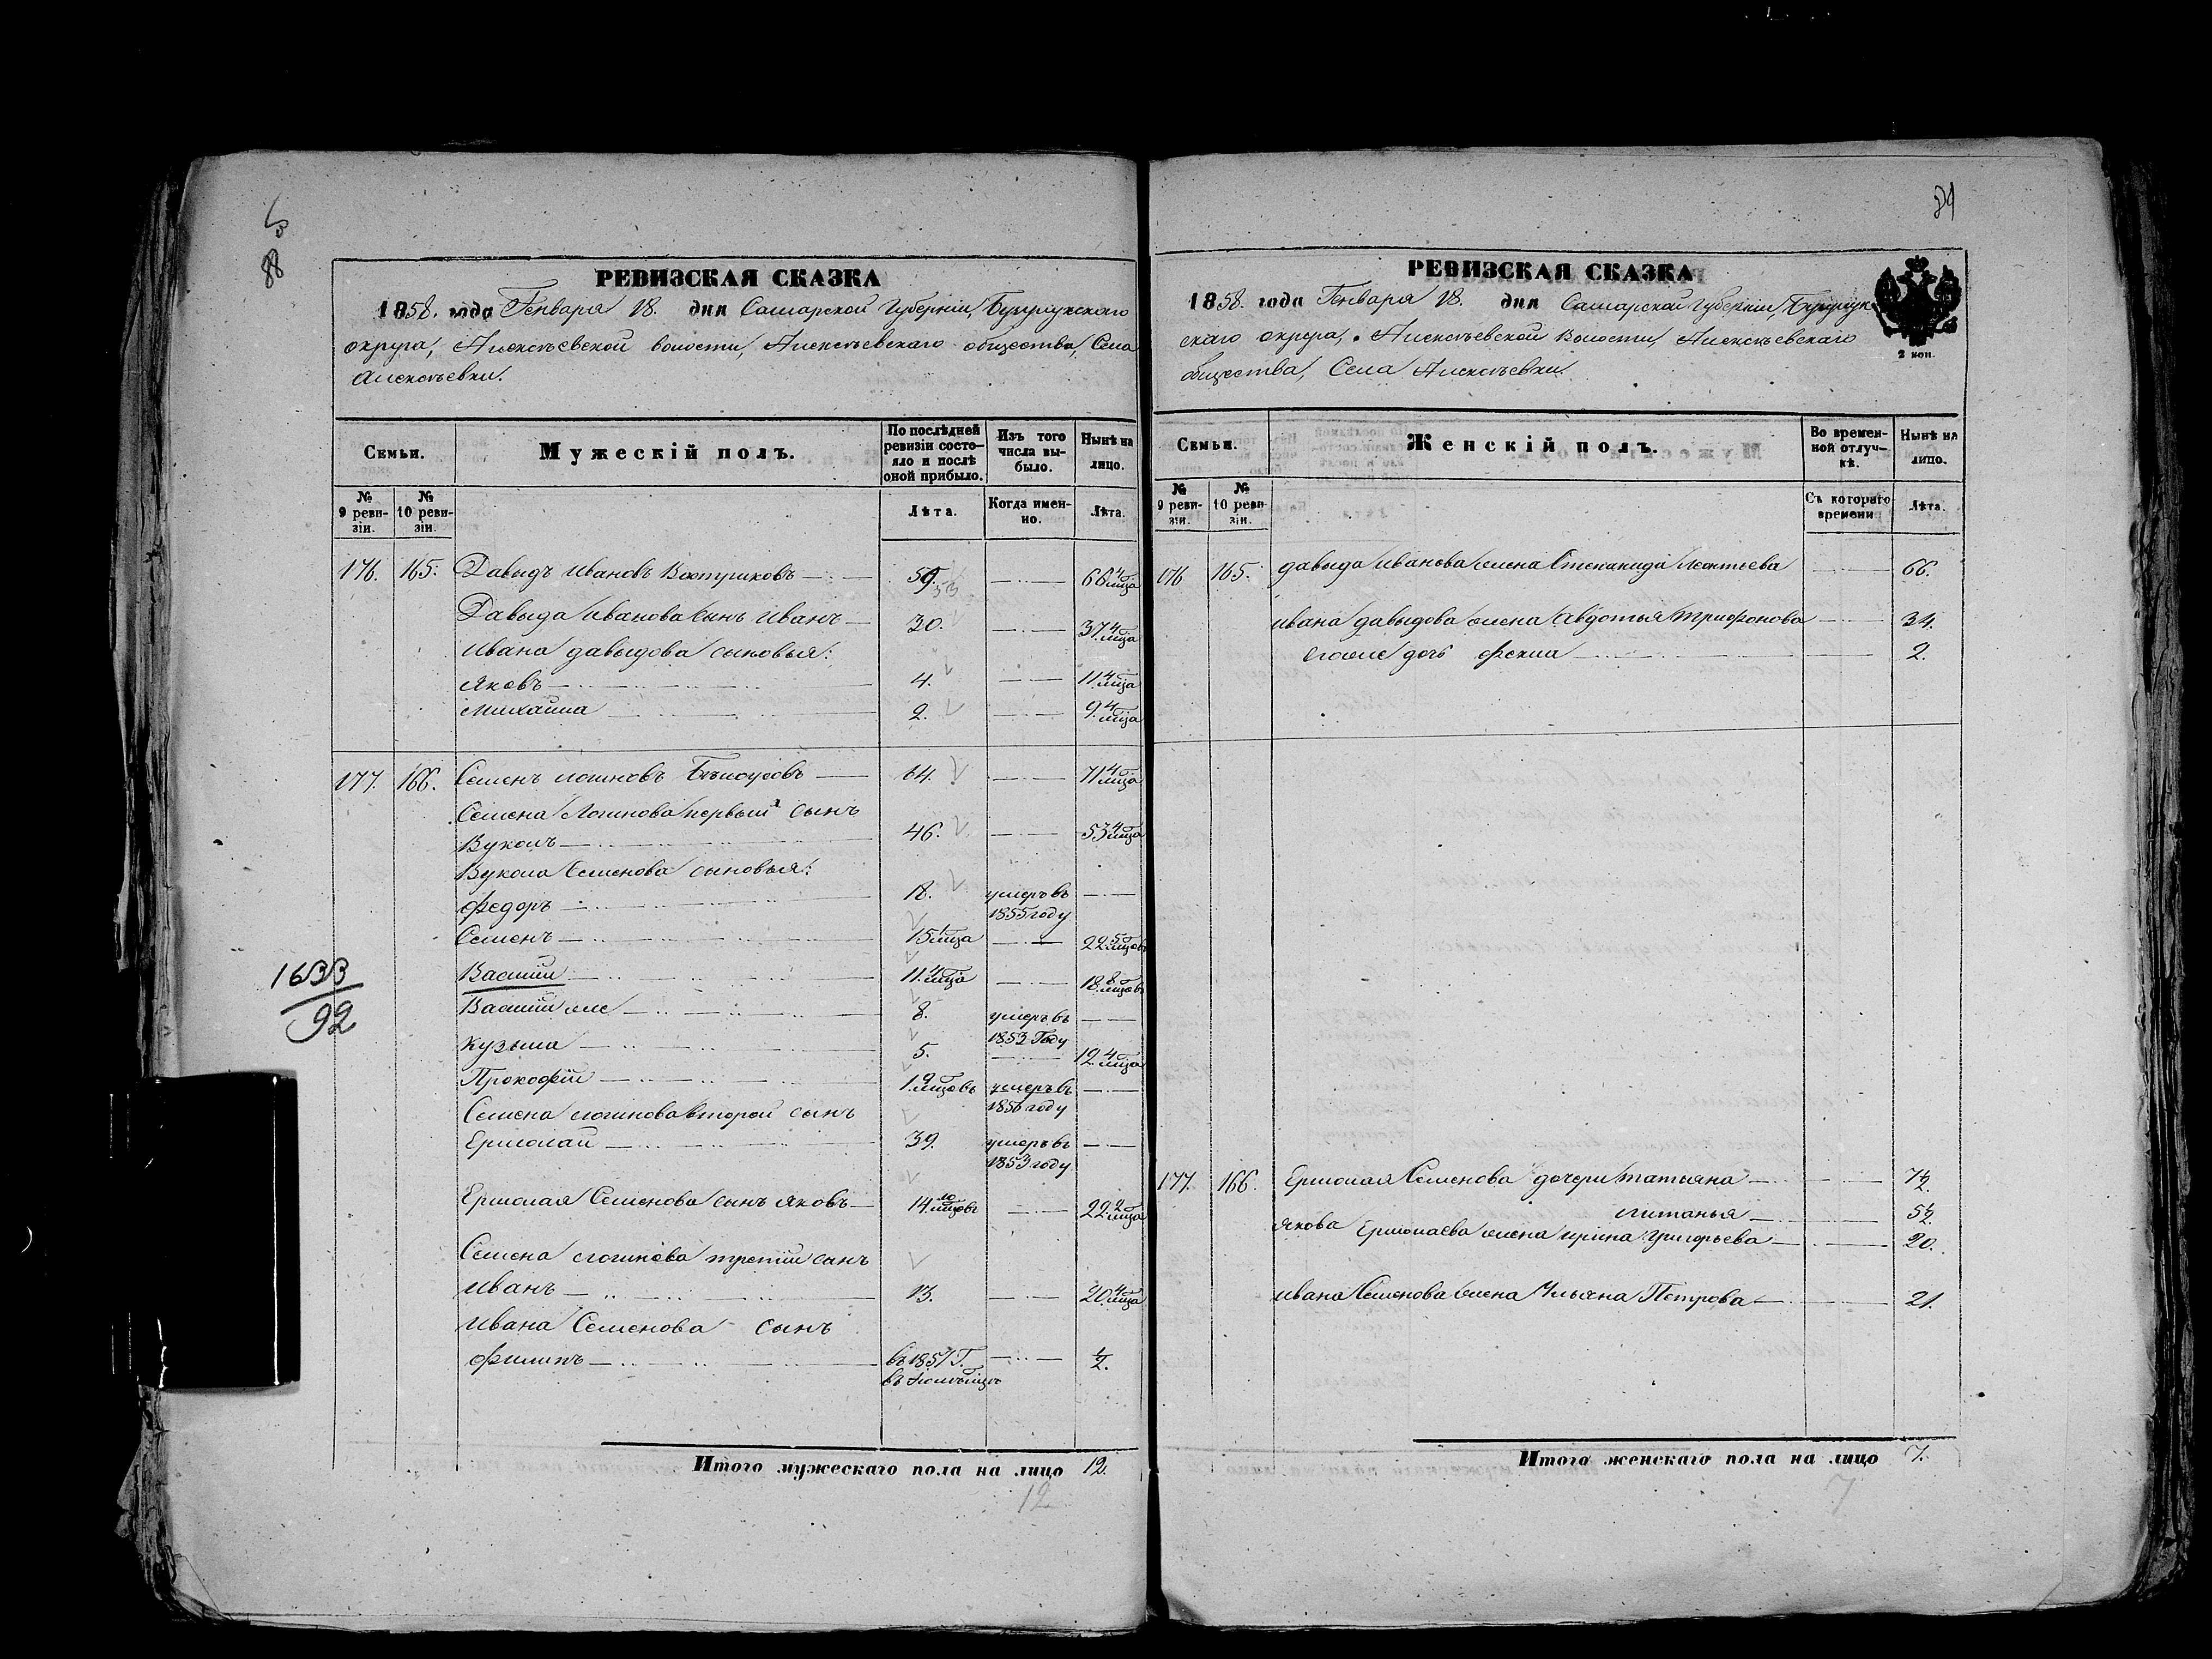 88
РЕВИЗСКАЯ СКАЗКА
1858. года Генваря 18. дня Самарской Губерніи, Бузулукскаго
округа, Алексѣевской волости, Алексѣевскаго общества, Села
Алексѣевки.
Семьи.
Мужескій полъ.
По послѣдней ревизіи состояло и послѣ оной прибыло.
Изъ того числа выбыло.
Нынѣ на лицо.
№ 9 ревизіи.
№ 10 ревизіи.
Лѣта.
Когда именно.
Лѣта.
176. 165. Давыдъ Ивановъ Востриковъ 59. 66 4 мца
Давыда Иванова сынъ Иванъ 30. 37 4 мца
Ивана Давыдова сыновья:
Яковъ 4. 11 4 мца
Михаила 2. 9. 4 мца
177. 166. Семенъ Логиновъ Бѣлоусовъ 64. 71 4 мца
Семена Логинова первый сынъ
Вуколъ 46. 53 4 мца
Вукола Семенова сыновья:
Федоръ 18. умеръ въ 1855 году
Семенъ 15 1 мца 22. 5 мцовъ
Василій 11. 4 мца 18. 8 мцовъ
Василій же 8. умеръ въ 1853 Году
Кузьма 5. 12. 4 мца
Прокофій 1. 9 мцовъ умеръ въ 1856 году
Семена Логинова второй сынъ
Ермолай 39. умеръ въ 1853 году
Ермолая Семенова сынъ Яковъ 14. 10 мцовъ 22. 2 мца
Семена Логинова третій сынъ
Иванъ 13. 20. 4 мца
Ивана Семенова сынъ
Филипъ въ 1857 Г. 1/2.
1633
92
Итого мужескаго пола на лицо 12.
12
РЕВИЗСКАЯ СКАЗКА
1858. года Генваря 18. дня Самарской Губерніи, Бузулук
скаго округа, Алексѣевской Волости, Алексѣевскаго
общества, Села Алексѣевки.
2 коп.
Семьи.
Женскій полъ.
Во временной отлучкѣ.
Нынѣ на лицо.
№ 9 ревизіи.
№ 10 ревизіи.
Съ котораго времени
Лѣта.
176 165. Давыда Иванова жена Степанида Леонтьева 66.
Ивана Давыдова жена Авдотья Трифонова 34.
егоже дочь Фекла 2.
177. 166. Ермолая Семенова дочери Татьяна 7 1/2.
Маланья 5 1/2.
Якова Ермолаева жена Ирина Григорьева 20.
Ивана Семенова жена Ульяна Петрова 21.
Итого женскаго пола на лицо 7.
7